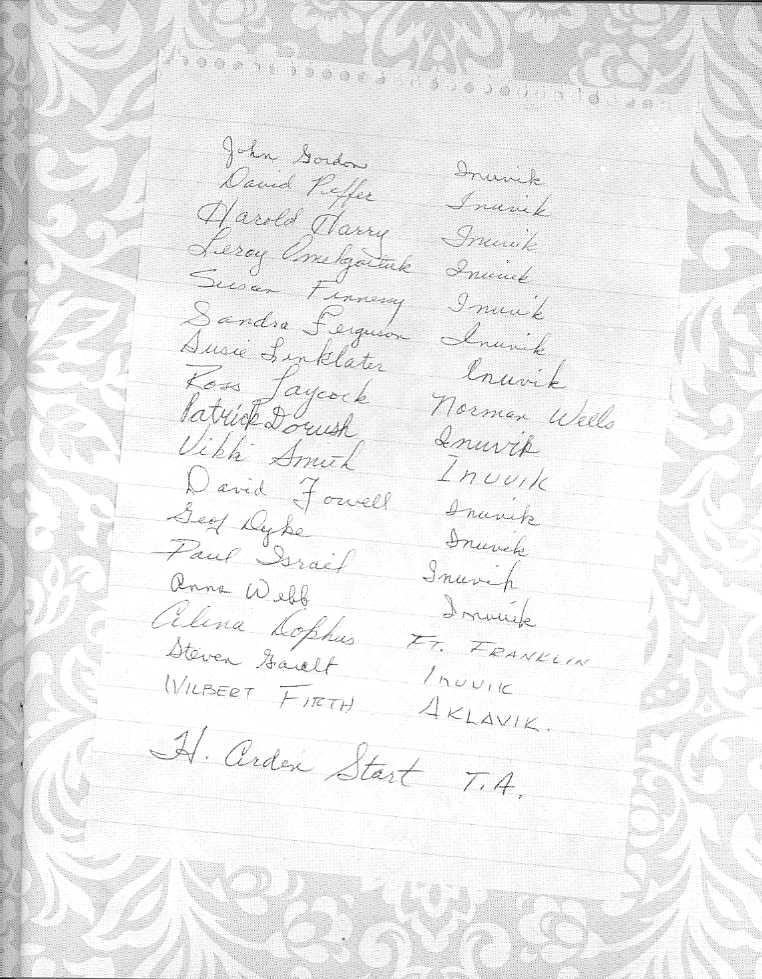 John Gordon Inuvik
David Peffer Inuvik
Harold Harry Inuvik
Leroy Inuvik
Susan Finnemy Inuvik
Sandra Ferguson Inuvik
Susie Linklater Inuvik
Ross Laycock Norman Wells
Patrick Dorush Inuvik
Vikki Smith INUVIK
David Fowell Inuvik
Geof Dyke Inuvik
Paul Israel Inuvik
Anna Webb Inuvik
Alina Inuvik
Steven Gault INUVIK
WILBERT FIRTH AKLAVIK.
H. Arden Start T.A.